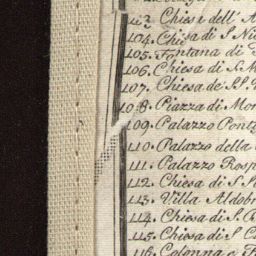 103. Chiesa dell' A
104. Chiesa di S Ni
105. Fontana di
106. Chiesa di S. M
107. Chiesa de SS.
108. Piazza di Mon
109. Palazzo Ponti
110. Palazzo della
111. Palazzo Rosp
112. Chiesa di S.
113. Villa Aldobr
114. Chiesa di S.
115. Chiesa di S C
116. Colonna e